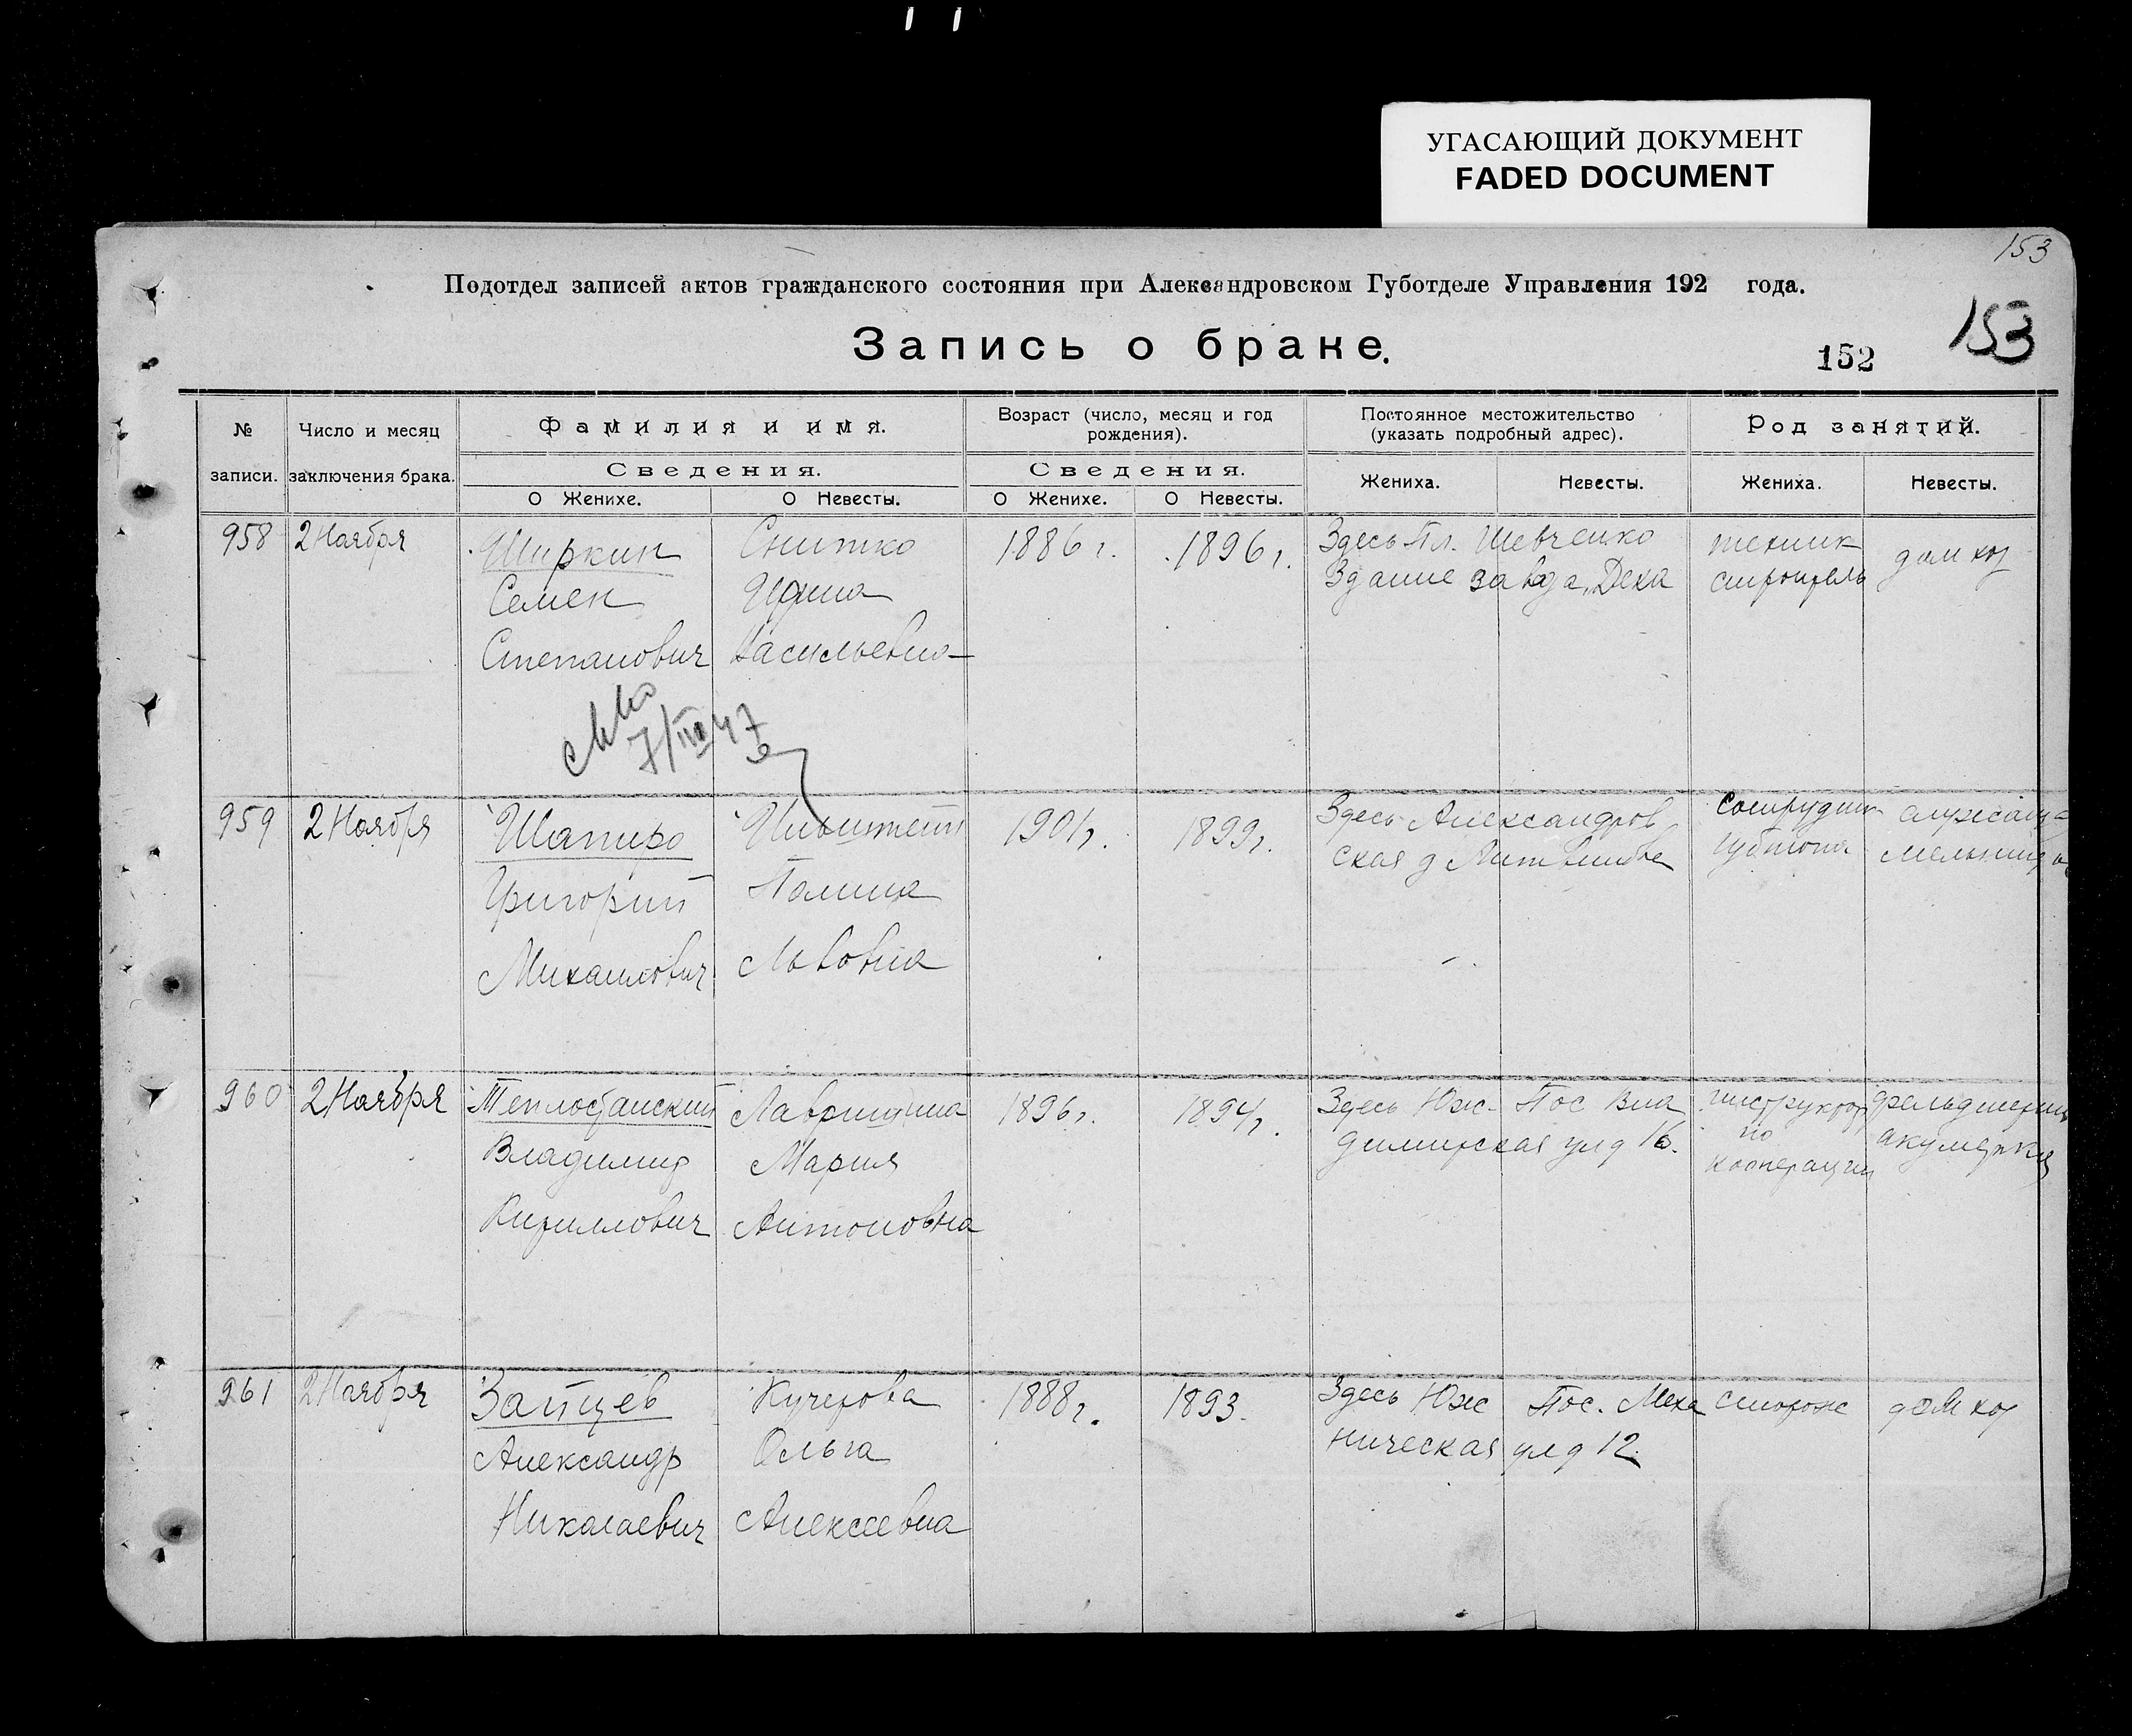 УГАСАЮЩИЙ ДОКУМЕНТ
FADED DOCUMENT
153
Подотдел записей актов гражданского состояния при Александровском Губотделе Управления 192 года.
Запись о браке.
152
153
№ записи.
Число и месяц заключения брака.
Фамилия и имя.
Сведения.
О Женихе.
О Невесты.
Возраст (число, месяц и год рождения).
Сведения.
О Женихе.
О Невесты.
Постоянное местожительство (указать подробный адрес).
Жениха.
Невесты.
Род занятий.
Жениха.
Невесты.
958
2 Ноября
Ширкин
Семен
Степанович
Снитко
Ирина
Васильевна
1886 г.
1896 г.
Здесь Пл. Шевченко
Здание завода Дека
техник
строитель
дом хоз
7/III 47
959
2 Ноября
Шапиро
Григорий
Михаилович
Полина
Львовна
1901 г.
1899 г.
Здесь Александров
ская д
Сотрудник
960
2 Ноября
Теплостанский
Владимир
Кириллович
Мария
Антоновна
1896 г.
1894 г.
Здесь Юж. Пос Вла
димирская ул д 16.
инструктор
по
кооперации
фельдшерица
акушерка
961
2 Ноября
Зайцев
Александр
Николаевич
Кучерова
Ольга
Алексеевна
1888 г.
1893
Здесь Юж Пос. Меха
ническая ул д 12.
сторож
дом хоз